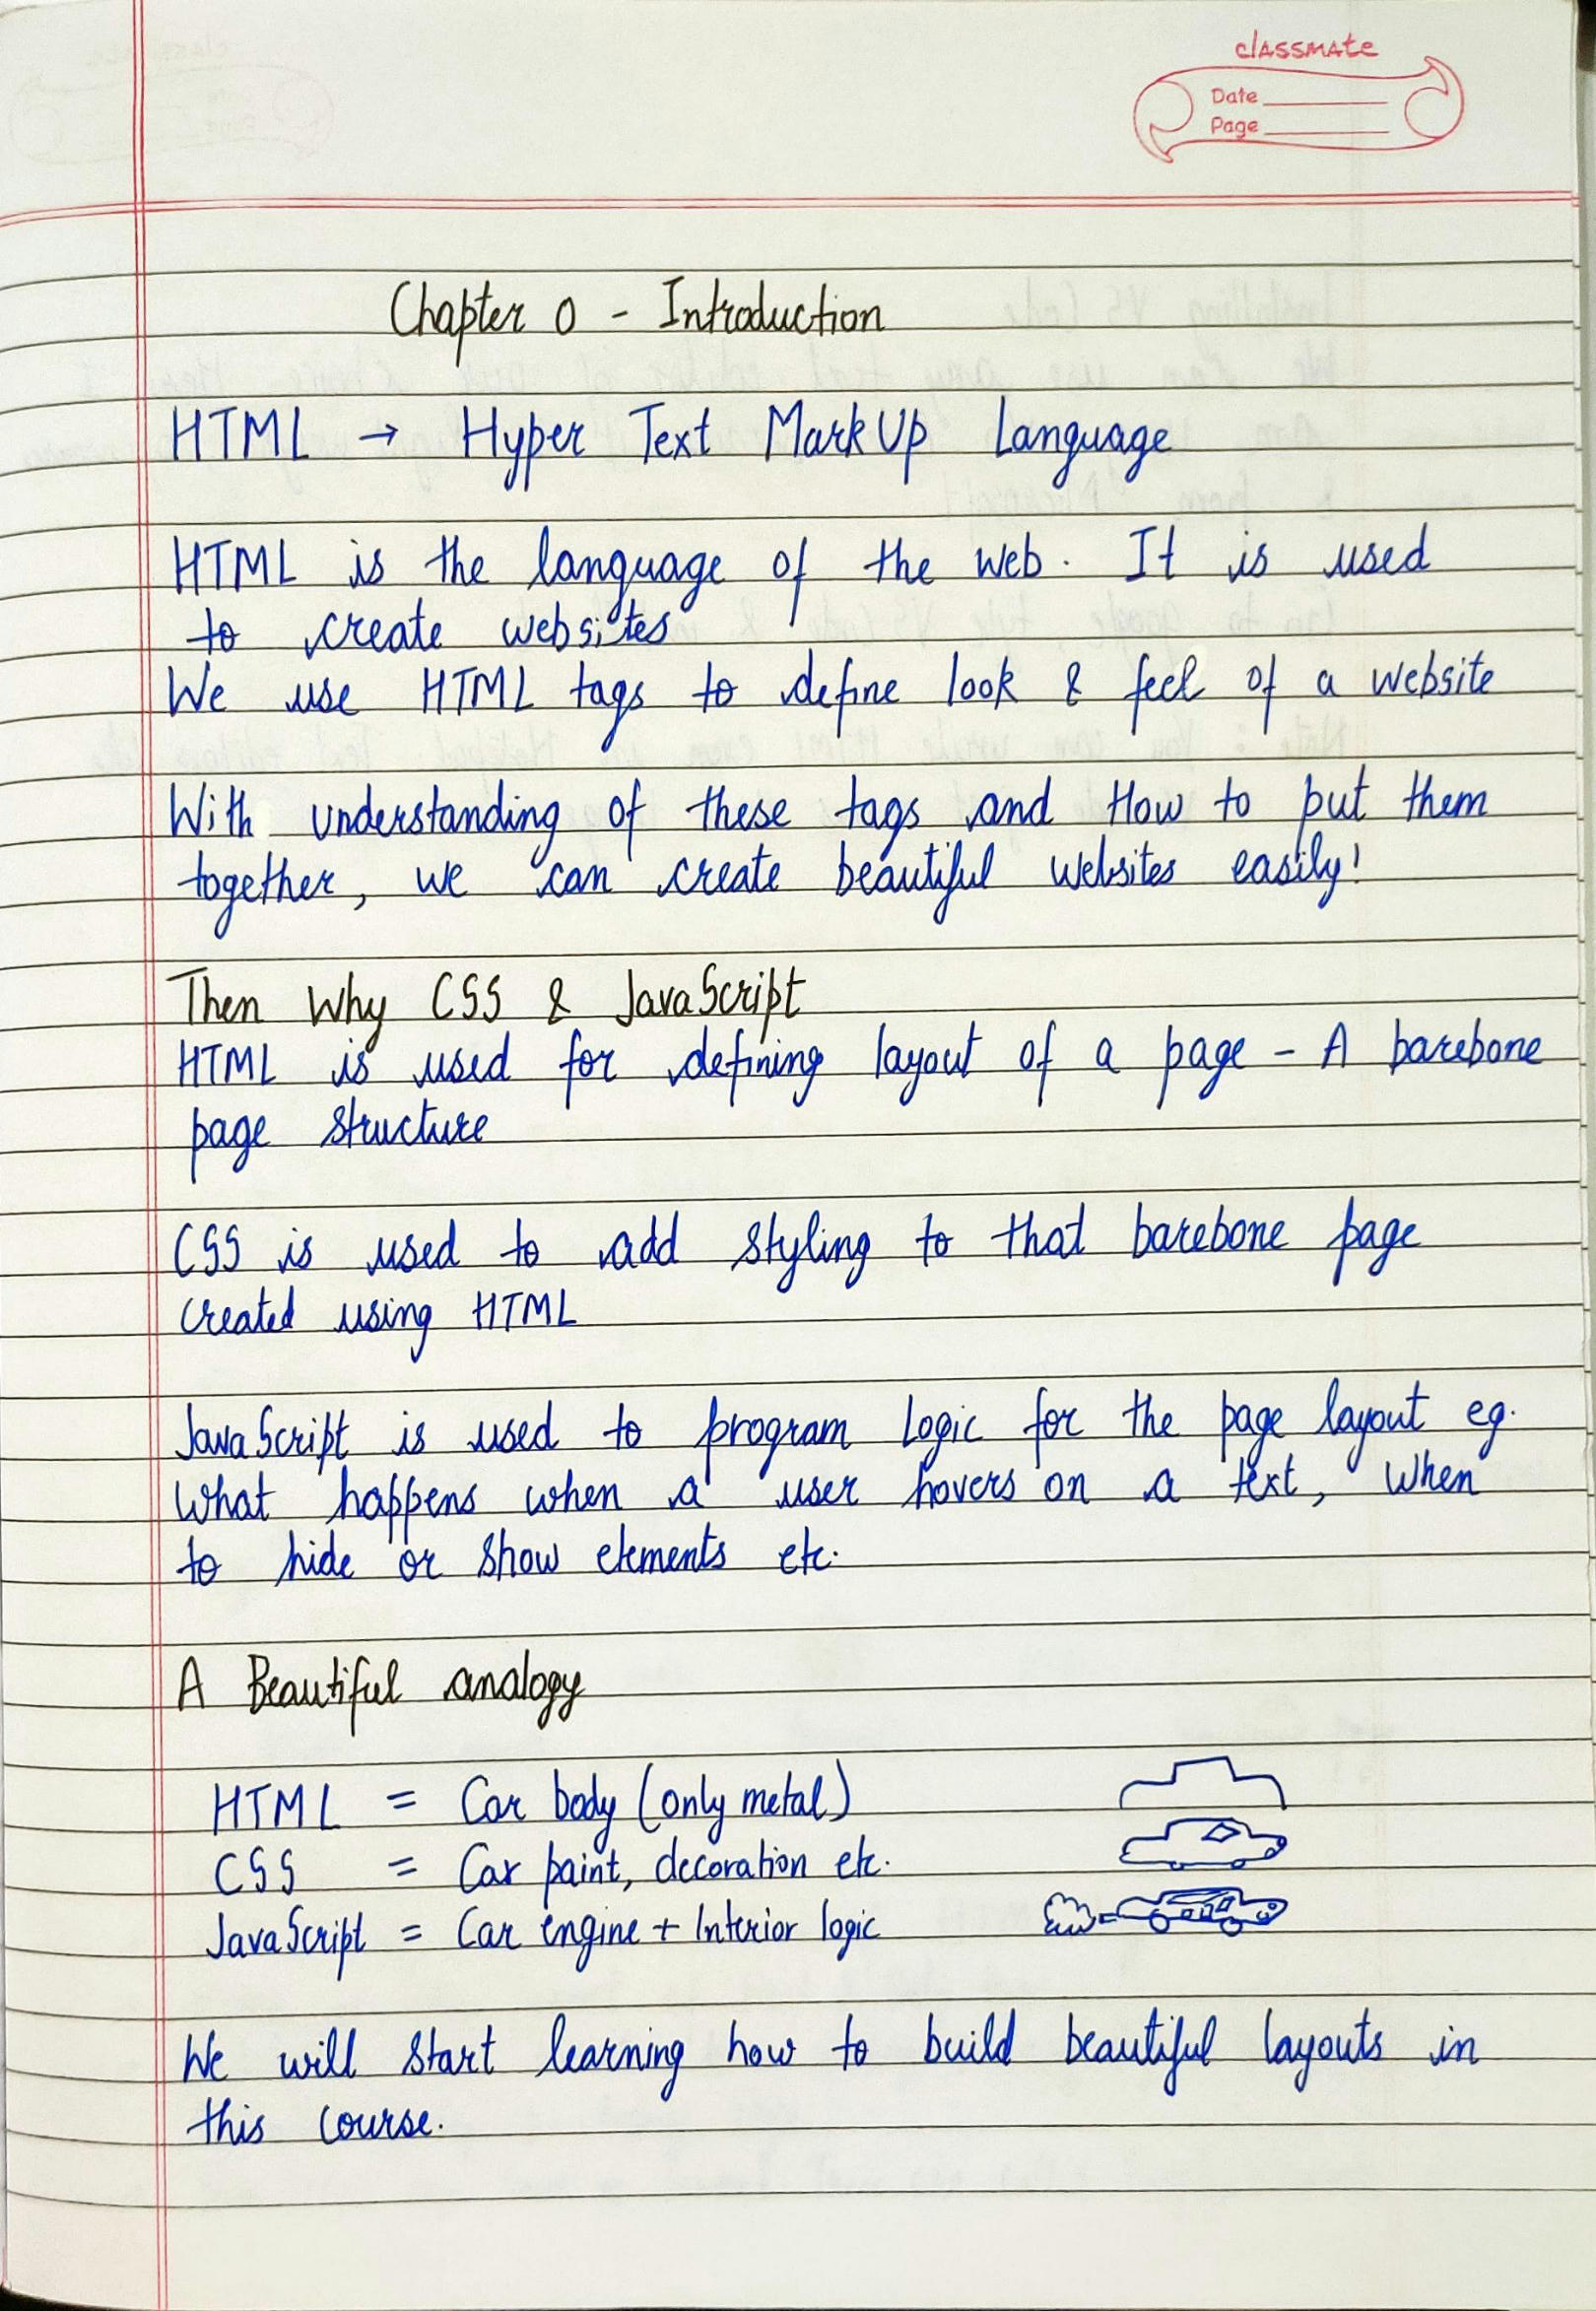 classmate
Date
Page
Chapter 0 - Introduction
HTML → Hyper Text MarkUp Language
HTML is the language of the web. It is used
to create websites
We use HTML tags to define look & feel of a website
With understanding of these tags and How to put them
together, we can create beautiful websites easily!
Then Why CSS & JavaScript
HTML is used for defining layout of a page - A barebone
page structure
CSS is used to add styling to that barebone page
created using HTML
JavaScript is used to program logic for the page layout eg.
What happens when a user hovers on a text, when
to hide or show elements etc.
A Beautiful analogy
HTML = Car body (only metal)
CSS = Car paint, decoration etc.
JavaScript = Car engine + Interior logic
We will start learning how to build beautiful layouts in
this course.